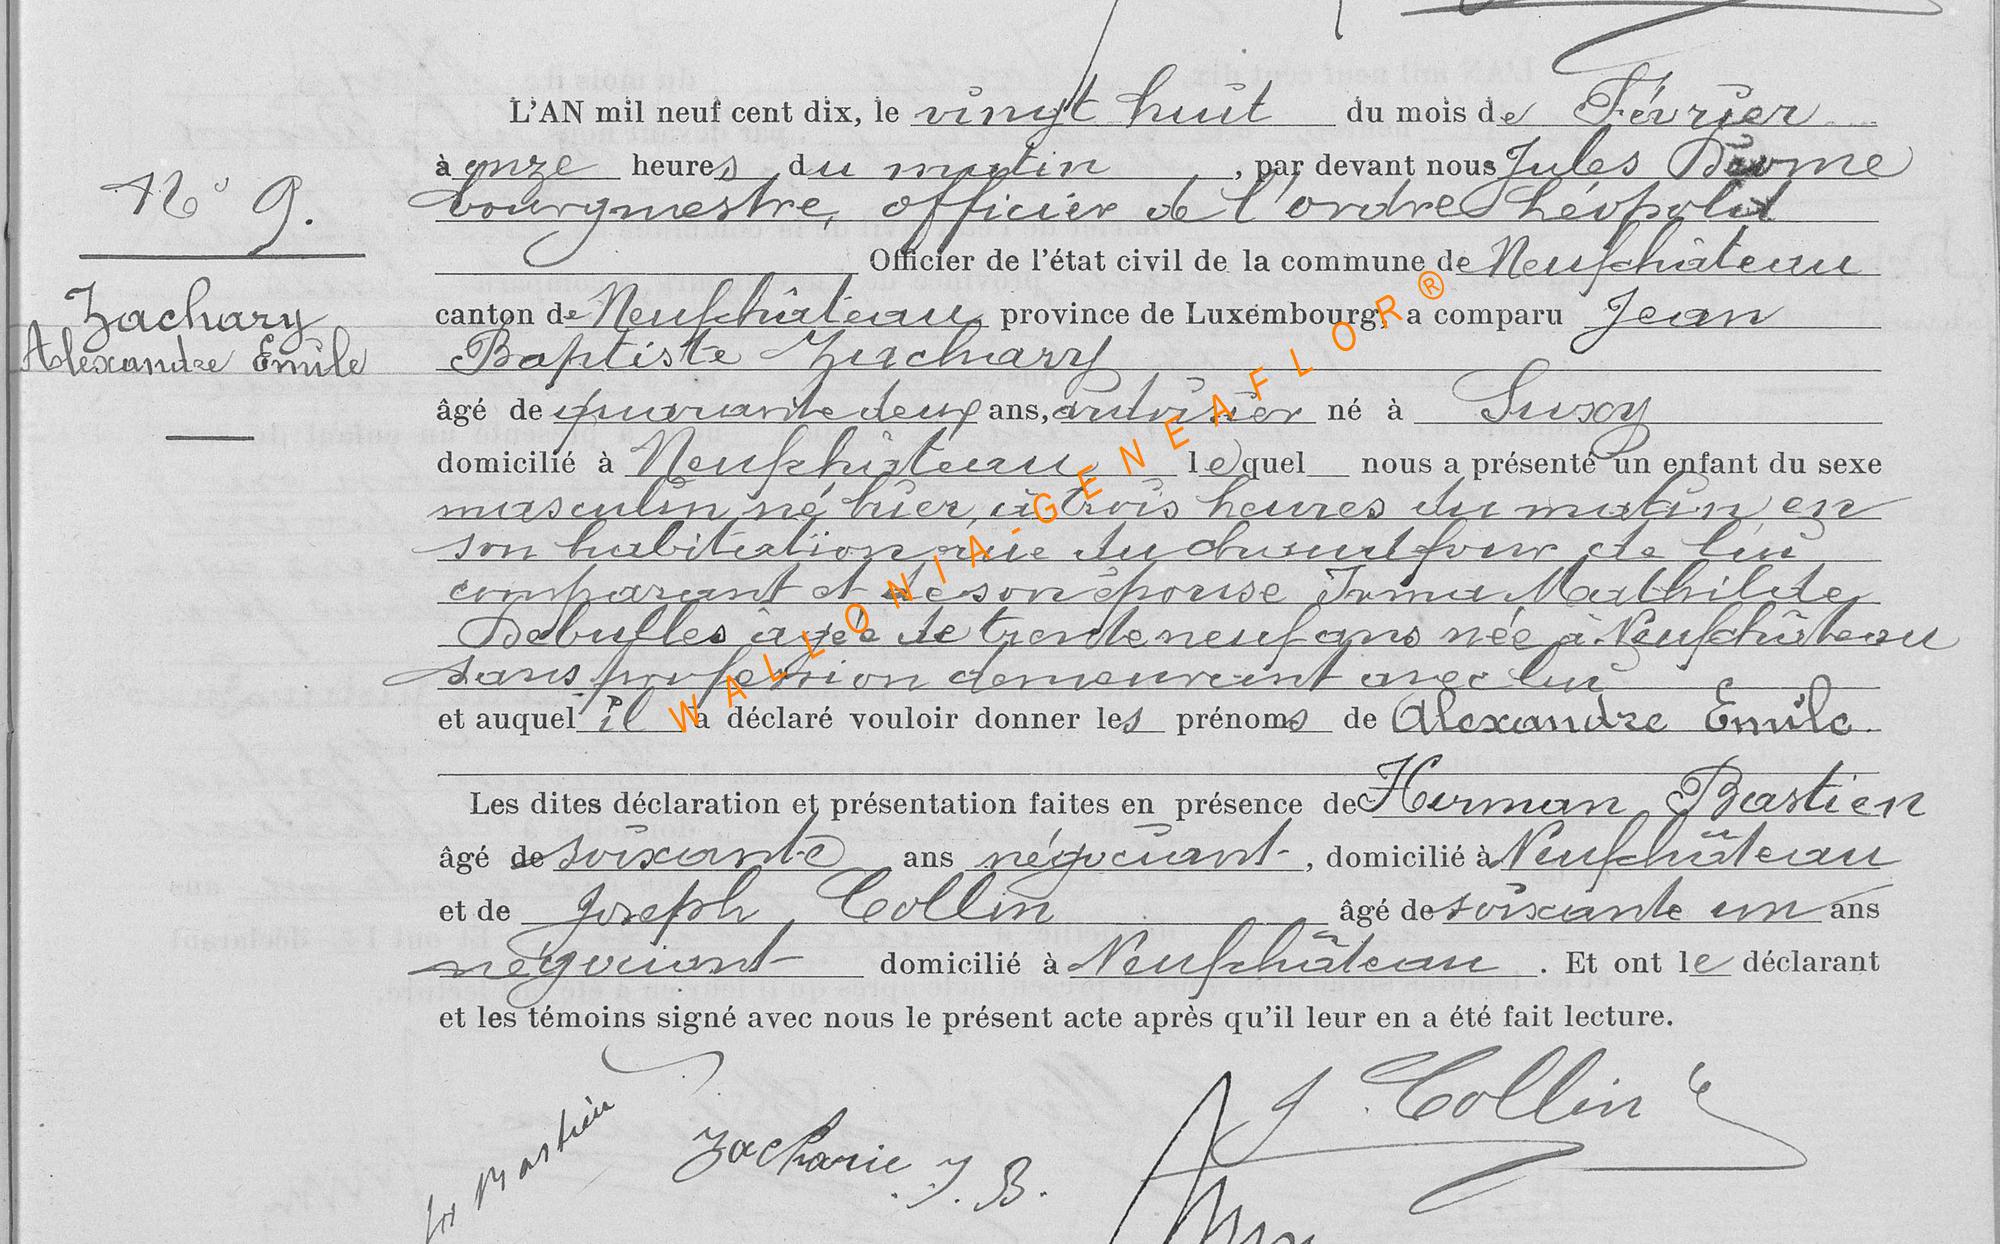 L'AN mil neuf cent dix, le vingt huit du mois de Février
à onze heures du matin, par devant nous Jules
bourgmestre, officier de l'ordre Léopold
Officier de l'état civil de la commune de Neufchâteau
canton de Neufchâteau province de Luxembourg, a comparu Jean
Baptiste Zachary
âgé de quarante deux ans, né à Suxy
domicilié à Neufchâteau lequel nous a présenté un enfant du sexe
masculin né hier, à trois heures du matin, en
son habitation, rue du chaudfour de lui
comparant et de son épouse Irma Mathilde
âgée de trente neuf ans née à Neufchâteau
sans profession demeurant avec lui
et auquel il a déclaré vouloir donner les prénoms de Alexandre Emile.
Les dites déclaration et présentation faites en présence de Herman Bastien
âgé de soixante ans négociant, domicilié à Neufchâteau
et de Joseph Collin âgé de soixante un ans
négociant domicilié à Neufchâteau. Et ont le déclarant
et les témoins signé avec nous le présent acte après qu'il leur en a été fait lecture.
N° 9.
Zachary
Alexandre Emile
J. Collin
Bastien
Zacharie. J. B.
WALLONIA-GENEAFLOR®